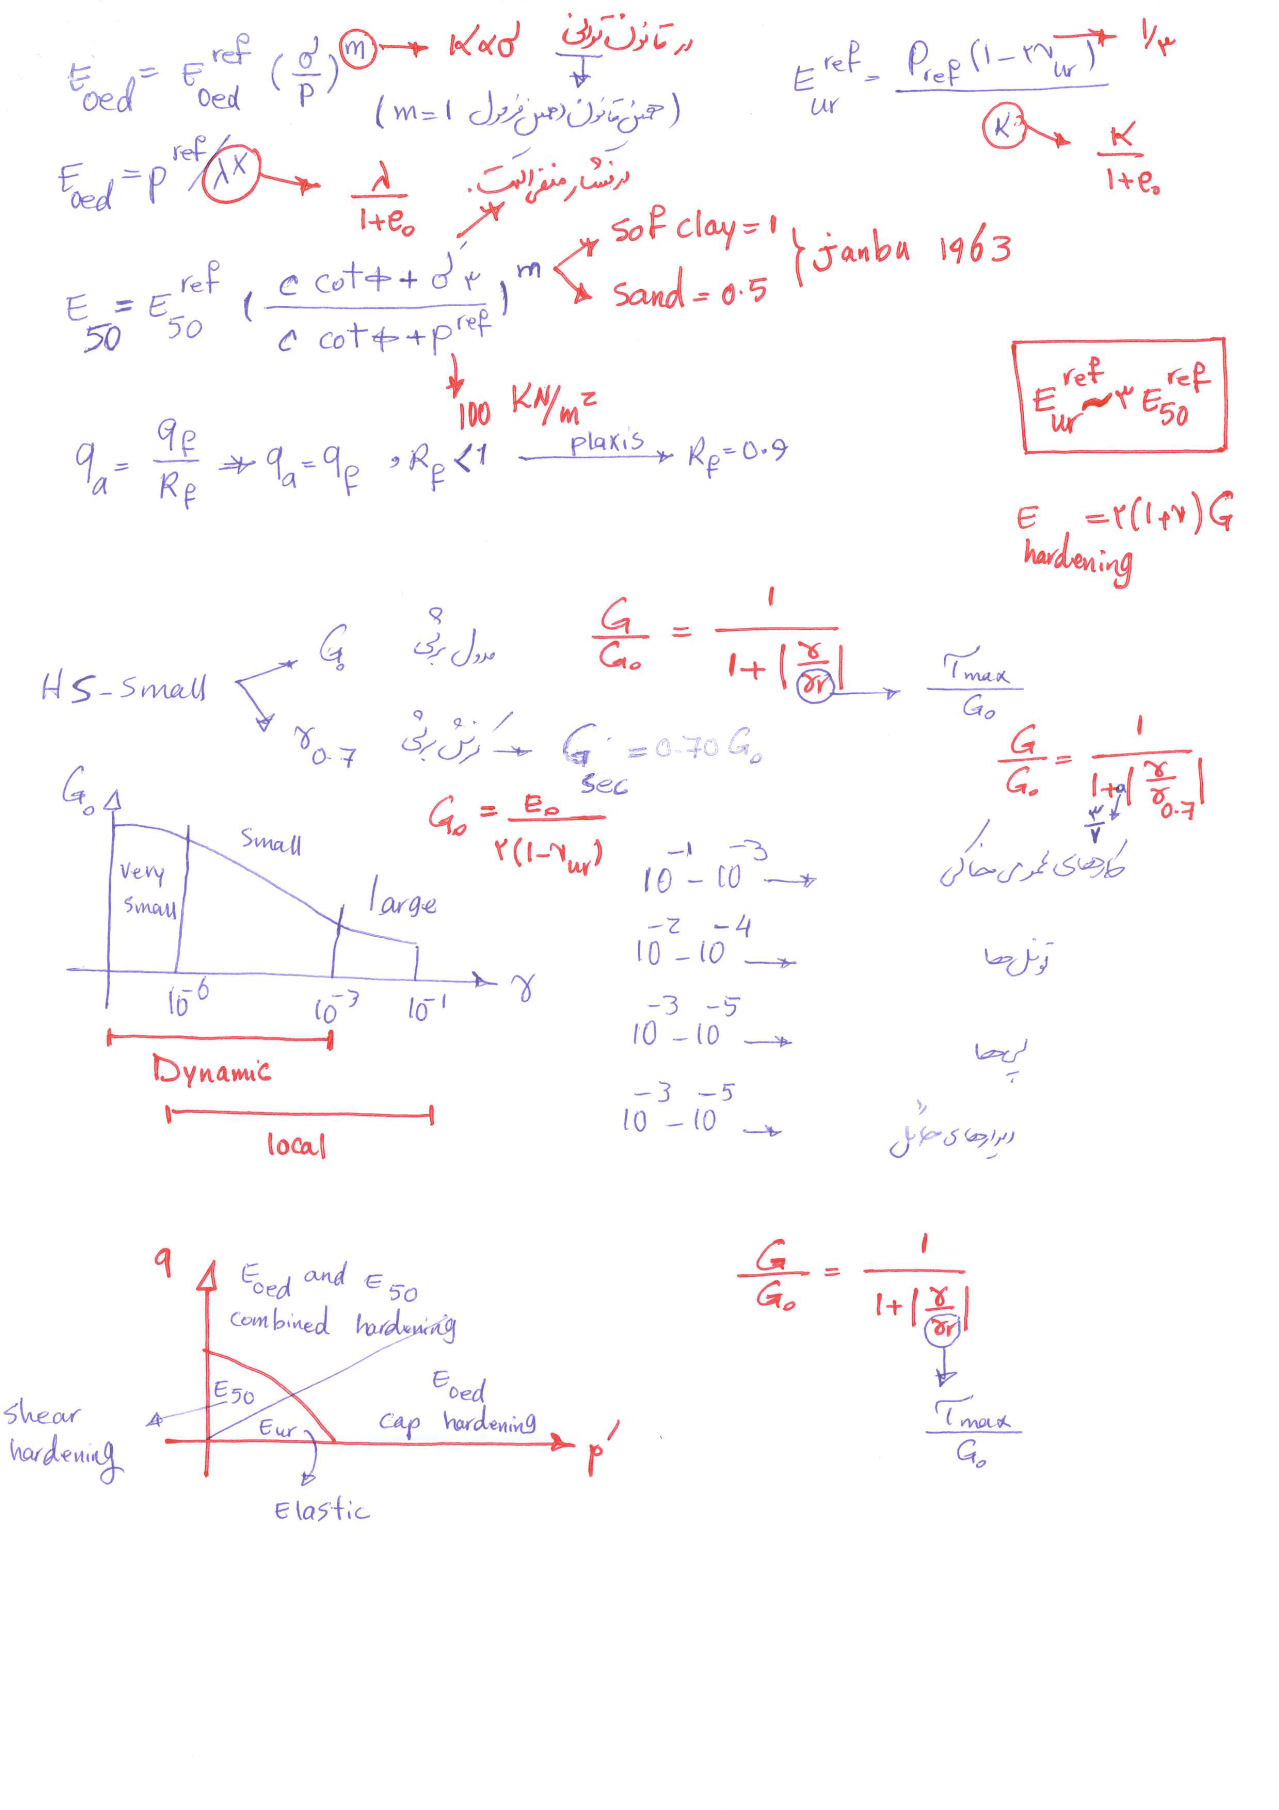 E_oed = E_oed^ref (σ'/P)^m → K∝σ در قانون توانی
(m=1 همین قانون همین فرمول)
E_ur^ref = P_ref(1-۲ν_ur)/K* → ۱/۳
K/(1+e₀)
E_oed = p^ref/λ* → λ/(1+e₀)
در فشار منفی است.
E_50 = E_50^ref ((c cotφ + σ'۳)/(c cotφ + p^ref))^m
sof clay = 1
sand = 0.5
janbu 1963
100 KN/m²
E_ur^ref ~ ۳ E_50^ref
q_a = q_f/R_f → q_a = q_f , R_f < 1 plaxis → R_f = 0.9
E_hardening = ۲(1+ν)G
HS-Small
G₀ مدول برشی
γ_0.7 کرنش برشی → G_sec = 0.70 G₀
G/G₀ = 1/(1+|γ/γr|) → τ_max/G₀
G/G₀ = 1/(1+a|γ/γ_0.7|)
۳/۷
G₀ = E₀/(۲(1-ν_ur))
G₀
very small
small
large
10^-6 10^-3 10^-1 γ
Dynamic
local
10^-1 - 10^-3 → کارهای عمومی خاکی
10^-2 - 10^-4 → تونل‌ها
10^-3 - 10^-5 → پی‌ها
10^-3 - 10^-5 → دیوارهای حائل
q
E_oed and E_50
combined hardening
E_50
E_ur
E_oed
cap hardening
shear
hardening
p'
Elastic
G/G₀ = 1/(1+|γ/γr|)
τ_max/G₀